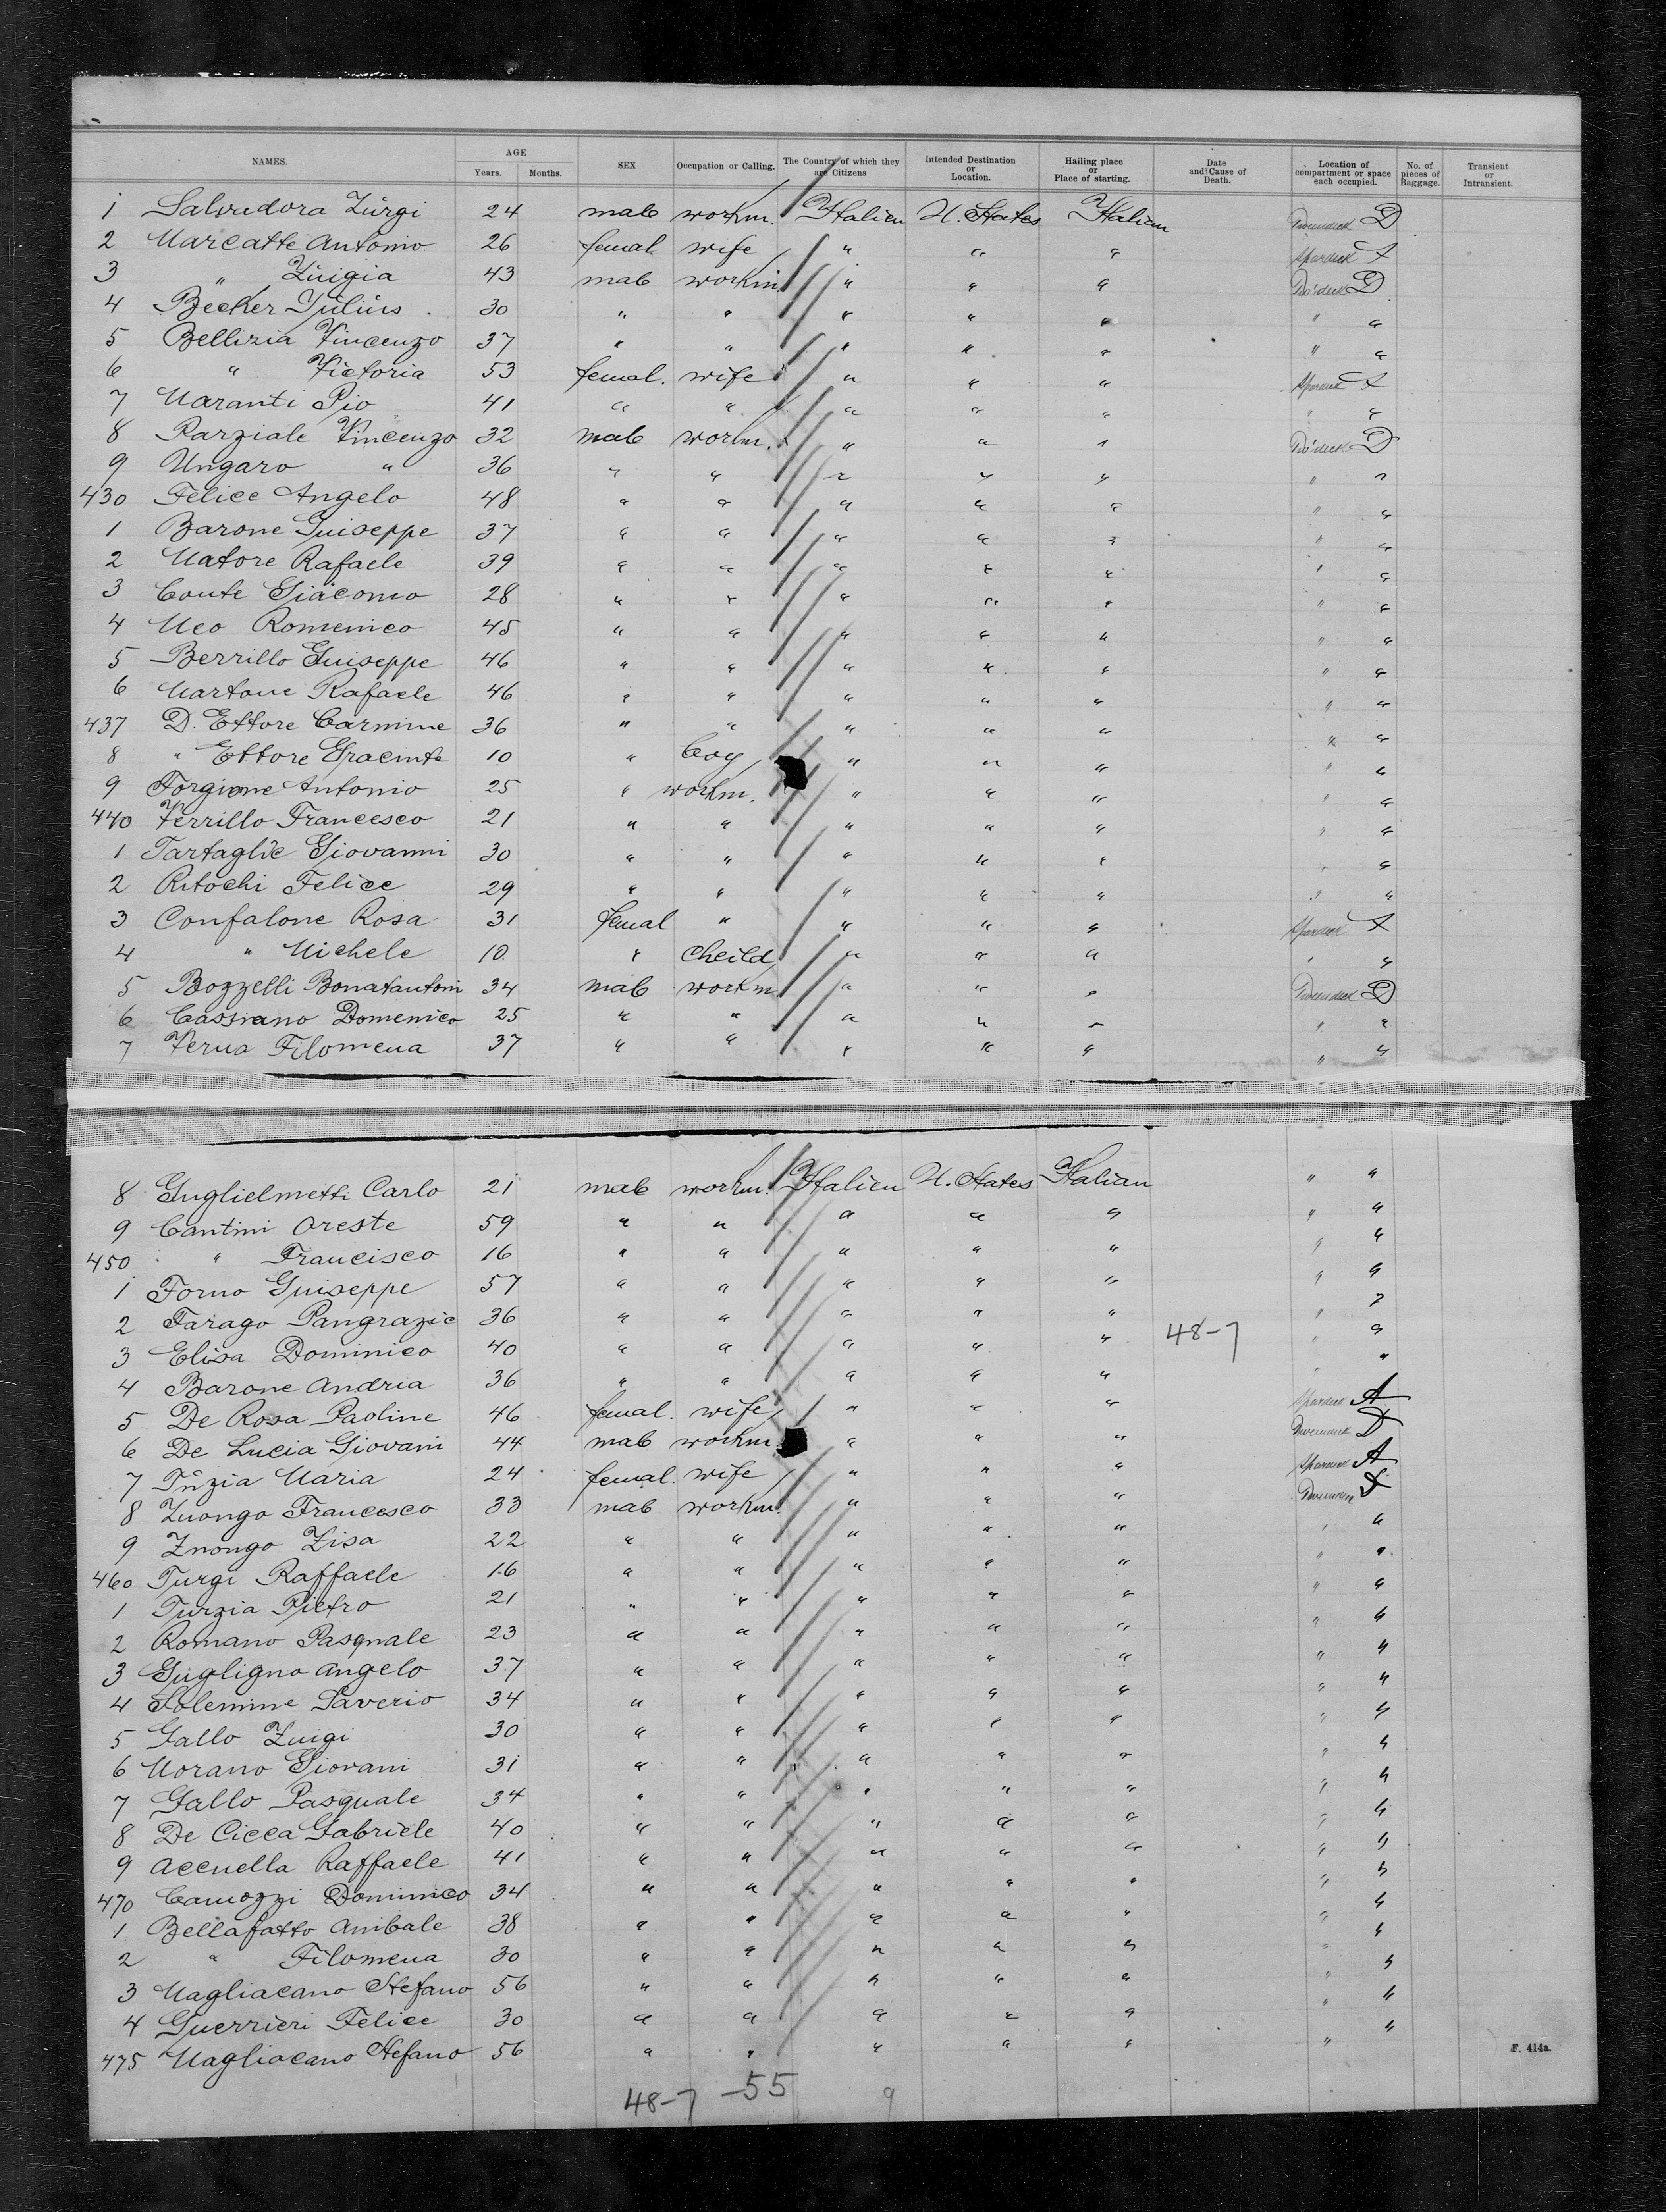 NAMES. AGE Years. Months. SEX Occupation or Calling. The Country of which they are Citizens Intended Destination or Location. Hailing place or Place of starting. Date and Cause of Death. Location of compartment or space each occupied. No. of pieces of Baggage. Transient or Intransient.
1 Salvudora Zürgi 24 male workm. Italien U. States Italian D
2 Marcatte Antonio 26 femal wife " " " A
3 " Luigia 43 male workm. " " " D
4 Becker Julius 30 " " " " " " "
5 Bellizia Vincenzo 37 " " " " " " "
6 " Victoria 53 femal. wife " " " A
7 Maranti Pio 41 " " " " " " "
8 Parziale Vincenzo 32 male workm. " " " D
9 Ungaro " 36 " " " " " " "
430 Felice Angelo 48 " " " " " " "
1 Barone Guiseppe 37 " " " " " " "
2 Matore Rafaele 39 " " " " " " "
3 Conte Giacomo 28 " " " " " " "
4 Meo Romenico 45 " " " " " " "
5 Berrillo Guiseppe 46 " " " " " " "
6 Martone Rafaele 46 " " " " " " "
437 D. Ettore Carmine 36 " " " " " " "
8 " Ettore Gracinto 10 " boy " " " " "
9 Forgione Antonio 25 " workm. " " " " "
440 Verrillo Francesco 21 " " " " " " "
1 Tartaglie Giovanni 30 " " " " " " "
2 Ritochi Felice 29 " " " " " " "
3 Confalone Rosa 31 femal " " " " A
4 " Michele 10 " cheild " " " " "
5 Bozzelli Bonatantoni 34 male workm. " " " D
6 Cassiano Domenico 25 " " " " " " "
7 Verna Filomena 37 " " " " " " "
8 Guglielmetti Carlo 21 male workm. Italien U. States Italian " "
9 Cantini Oreste 59 " " " " " " "
450 " Francisco 16 " " " " " " "
1 Forno Guiseppe 57 " " " " " " "
2 Farago Pangrazie 36 " " " " " " "
3 Elisa Dominico 40 " " " " " 48-7 " "
4 Barone Andria 36 " " " " " " "
5 De Rosa Paoline 46 femal. wife " " " A
6 De Lucia Giovani 44 male workm. " " " D
7 Tinzia Maria 24 femal. wife " " " A
8 Luongo Francesco 33 male workm. " " " D
9 Znongo Lisa 22 " " " " " " "
460 Turgi Raffaele 16 " " " " " " "
1 Turzia Pietro 21 " " " " " " "
2 Romano Pasquale 23 " " " " " " "
3 Gugligno Angelo 37 " " " " " " "
4 Solemine Saverio 34 " " " " " " "
5 Gallo Luigi 30 " " " " " " "
6 Morano Giovani 31 " " " " " " "
7 Gallo Pasquale 34 " " " " " " "
8 De Cicca Gabriele 40 " " " " " " "
9 Accuella Raffaele 41 " " " " " " "
470 Camozzi Dominico 34 " " " " " " "
1 Bellafatto Anibale 38 " " " " " " "
2 " Filomena 30 " " " " " " "
3 Magliacano Stefano 56 " " " " " " "
4 Guerrieri Felice 30 " " " " " " "
475 Magliacano Stefano 56 " " " " " "
F. 414a.
48-7 -55 9